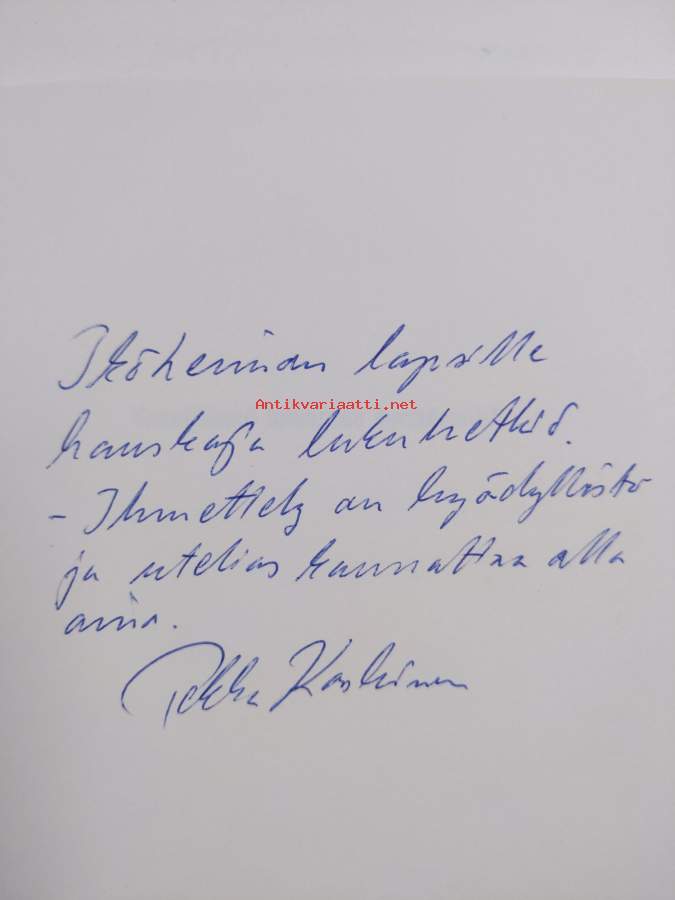 lapsille
Antikvariaatti.net
hauskoja lukuhetkiä.
- Ihmettely on hyödyllistä
ja utelias kannattaa olla
aina.
Pekka Koskinen